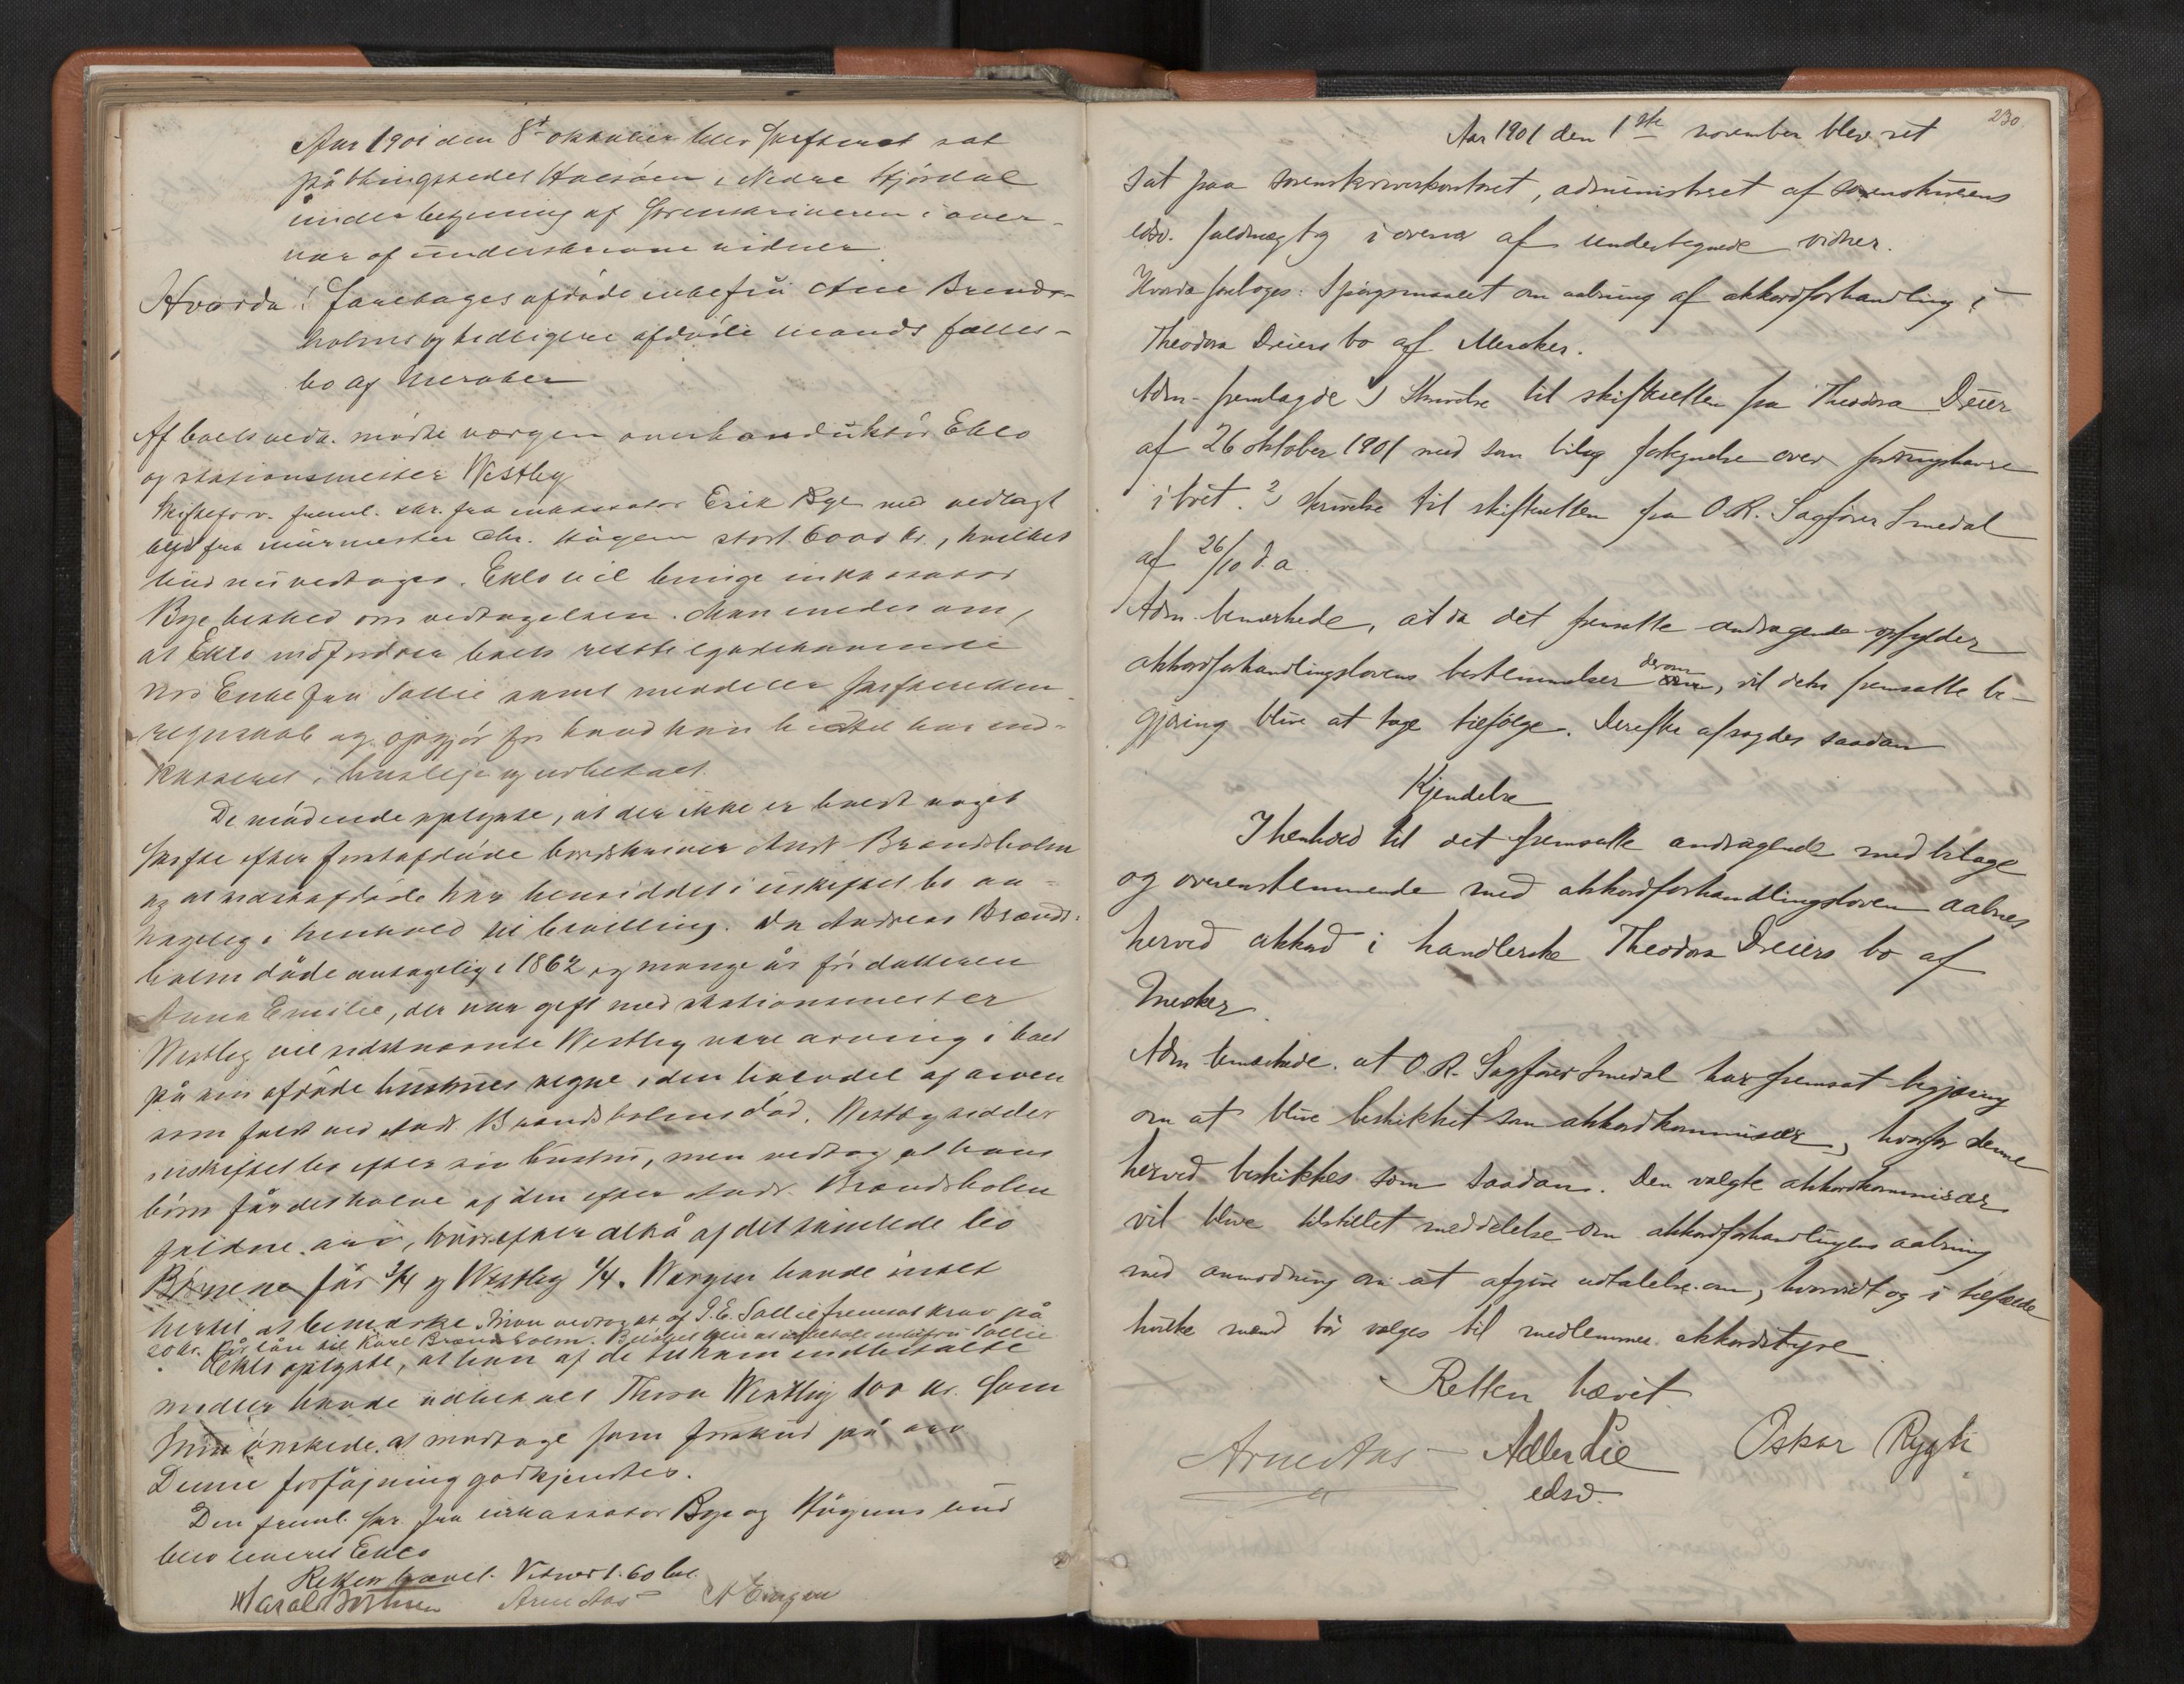 Aar 1901 den 8de oktober blev skifteret sat
på thingstedet Halsöen i Nedre Stjördal
under betjening af sorenskriveren i over-
vær af underskrevne vidner.
Hvorda: foretoges afdöde enkefru Ane Brands-
holms og tidligere afdöde mands fælles-
bo af Meraker
Af boets vedk. mødte værgen overkonduktör Eklo
og stationsmester Westby
Skifteforv. freml. skr. fra inkassator Erik Bye med vedlagt
bud fra murmester Chr. Högen stort 6000 kr., hvilket
bud nu vedtages. Eklo vil bringe inkassator
Bye besked om vedtagelsen. Man enedes om,
at Eklo indfordrer boets resttilgodehavende
hos Enkefru Sollie samt meddeler skifteretten
regnskab og opgjör for hvad han hidtil har ind-
kasseret i husleje og udbetalt.
De mödende oplyste, at der ikke er holdt noget
skifte efter förstafdöde bondskriver Andr. Brandsholm
og at sidstafdöde har hensiddet i uskiftet bo an-
tagelig i henhold til bevilling. Da Andreas Brands-
holm döde antagelig i 1862 og mange år för datteren
Anna Emilie, der var gift med stationsmester
Westby vil sidstnævnte Westby være arving i boet
på sin afdöde hustrues vegne i den halvdel af arven
som faldt ved Andr. Brandsholms död. Westby sidder
i uskiftet bo efter sin hustru, men vedtog at hans
börn får det halve af den efter Andr. Brandsholm
faldne arv, hvorefter altså af det samlede bo
Börnene får 3/4 og Westby 1/4. Værgen havde intet
hertil at bemærke. Man vedtog at af S. E. Sollie fremsat krav på
20 kr. for lån til Karl Brandsholm. Beløbet blir at udbetale enkefru Sollie.
Eklo oplyste, at han af de til ham indbetalte
midler havde udbetalt Thora Westby 100 kr. som
hun önskede at modtage som forskud på arv
Denne forföjning godkjendtes.
Den freml. skr. fra inkassator Bye og Högens bud
blev leveret Eklo
Retten hævet. Vidner 1.60 bet.
Harald Bothner Arne Aas N Engen
230.
Aar 1901 den 1ste november blev ret
sat paa sorenskriverkontoret, administreret af sorenskriverens
edsv. fuldmægtig i overvær af undertegnede vidner.
Hvorda foretoges: Spörgsmaalet om aabning af akkordforhandling i
Theodora Dreiers bo af Meraker.
Adm. fremlagde 1) Skrivelse til skifteretten fra Theodora Dreier
af 26 oktober 1901 med som bilag fortegnelse over fordringshavere
i boet. 2) skrivelse til skifteretten fra O.R. Sagförer Smedal
af 26/10 d. a.
Adm. bemærkede, at da det fremsatte andragende opfylder
akkordforhandlingslovens bestemmelser derom, vil dets fremsatte be-
gjæring blive at tage tilfölge. Derefter afsagdes saadan
Kjendelse
I henhold til det fremsatte andragende med bilage
og overenstemmende med akkordforhandlingsloven aabnes
herved akkord i handlerske Theodora Dreiers bo af
Meraker.
Adm. bemærkede. at O.R. Sagförer Smedal har fremsat begjæring
om at blive beskikket som akkordkommissær, hvorfor denne
herved beskikkes som saadan. Den valgte akkordkommissær
vil blive tilstillet meddelelse om akkordforhandlingens aabning
med anmodning om at afgive udtalelse om, hvorvidt og i tilfælde
hvilke mænd bör vælges til medlemmer akkordstyre.
Retten hævet.
Arne Aas Adler Lie Oskar Rygh
edsv.